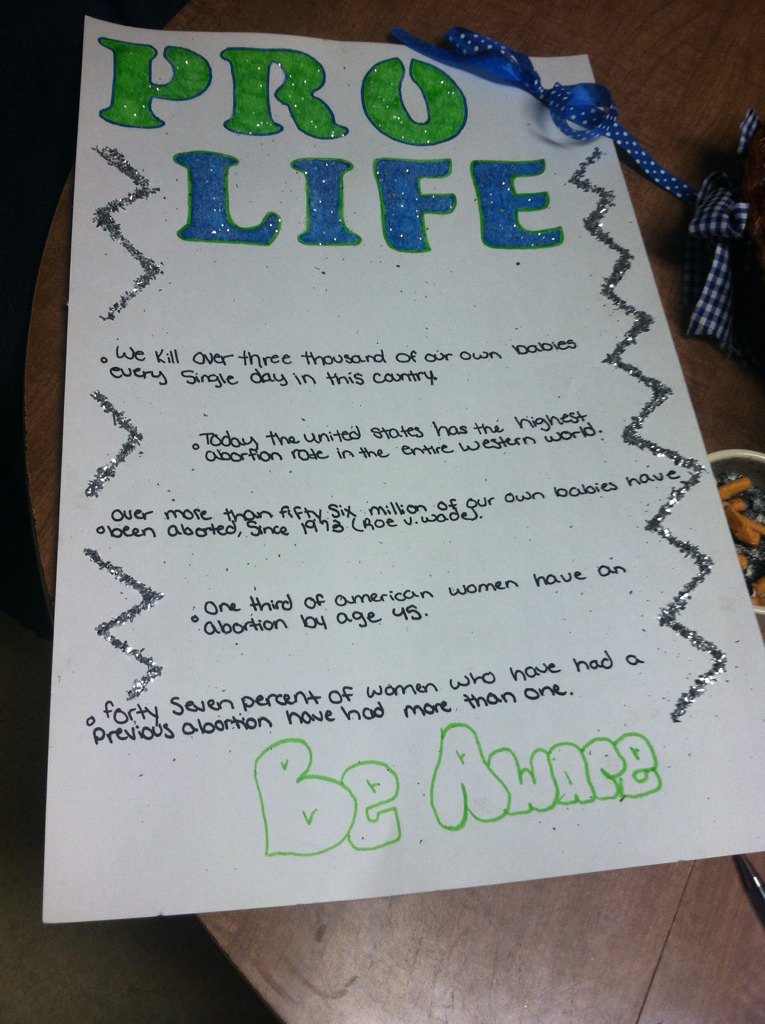 PRO
LIFE
We Kill over three thousand of our own babies
every single day in this country.
Today the united states has the highest
abortion rate in the entire western world.
over more than fifty six million of our own babies have
been aborted, since 1973 (Roe v. wade).
One third of american women have an
abortion by age 45.
forty seven percent of women who have had a
previous abortion have had more than one.
Be Aware